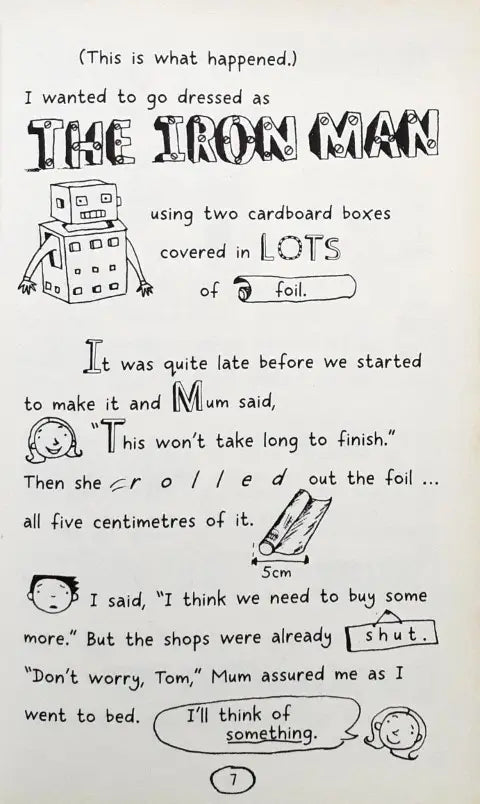 (This is what happened.)
I wanted to go dressed as
THE IRON MAN
using two cardboard boxes
covered in LOTS
of foil.
It was quite late before we started
to make it and Mum said,
"This won't take long to finish."
Then she rolled out the foil ...
all five centimetres of it.
5cm
I said, "I think we need to buy some
more." But the shops were already shut.
"Don't worry, Tom," Mum assured me as I
went to bed. I'll think of
something.
7